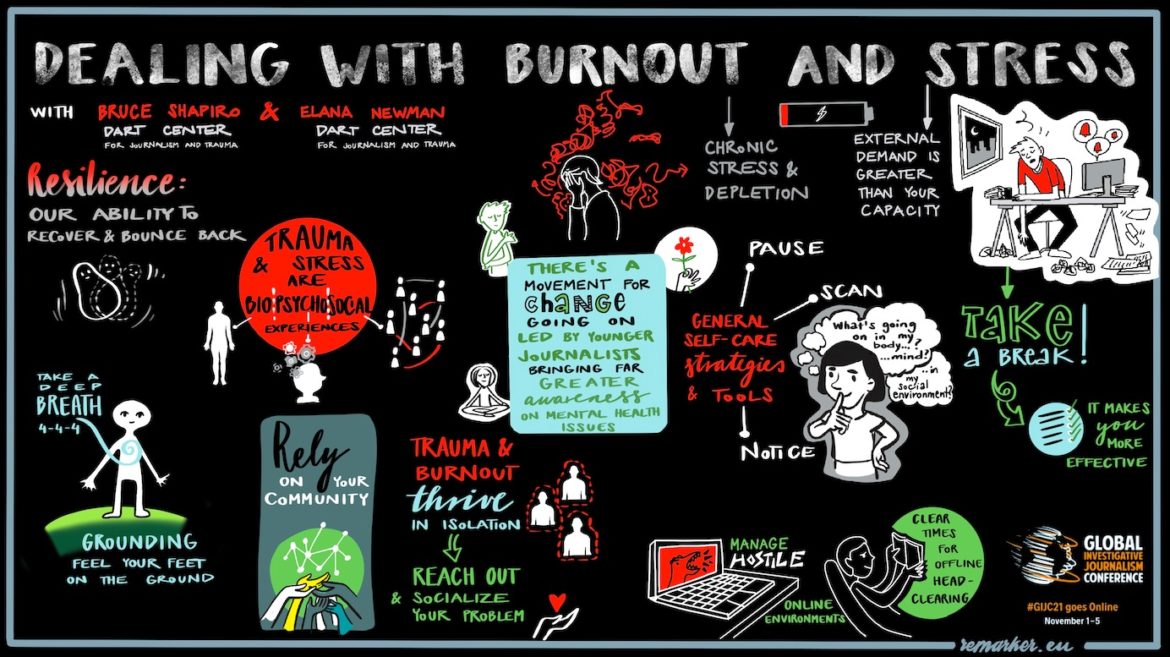 DEALING WITH BURNOUT AND STRESS
WITH BRUCE SHAPIRO & ELANA NEWMAN
DART CENTER
FOR JOURNALISM AND TRAUMA
DART CENTER
FOR JOURNALISM AND TRAUMA
Resilience:
OUR ABILITY TO
RECOVER & BOUNCE BACK
TRAUMA
& STRESS
ARE
BIOPSYCHOSOCAL
EXPERIENCES
CHRONIC
STRESS &
DEPLETION
EXTERNAL
DEMAND IS
GREATER
THAN YOUR
CAPACITY
THERE'S A
MOVEMENT FOR
CHANGE
GOING ON
LED BY YOUNGER
JOURNALISTS
BRINGING FAR
GREATER
awareness
ON MENTAL HEALTH
ISSUES
PAUSE
SCAN
GENERAL
SELF-CARE
strategies
& TOOLS
NOTICE
What's going
on in my
body...?
...mind?
...in
my
social
environment?
TAKE
a BREAK!
IT MAKES
you
MORE
EFFECTIVE
TAKE A
DEEP
BREATH
4-4-4
GROUNDING
FEEL YOUR FEET
ON THE GROUND
Rely
ON YOUR
COMMUNITY
TRAUMA &
BURNOUT
thrive
IN ISOLATION
REACH OUT
& SOCIALIZE
YOUR PROBLEM
MANAGE
HOSTILE
ONLINE
ENVIRONMENTS
CLEAR
TIMES
FOR
OFFLINE
HEAD-
CLEARING
GLOBAL
INVESTIGATIVE
JOURNALISM
CONFERENCE
#GIJC21 goes Online
November 1-5
remarker.eu